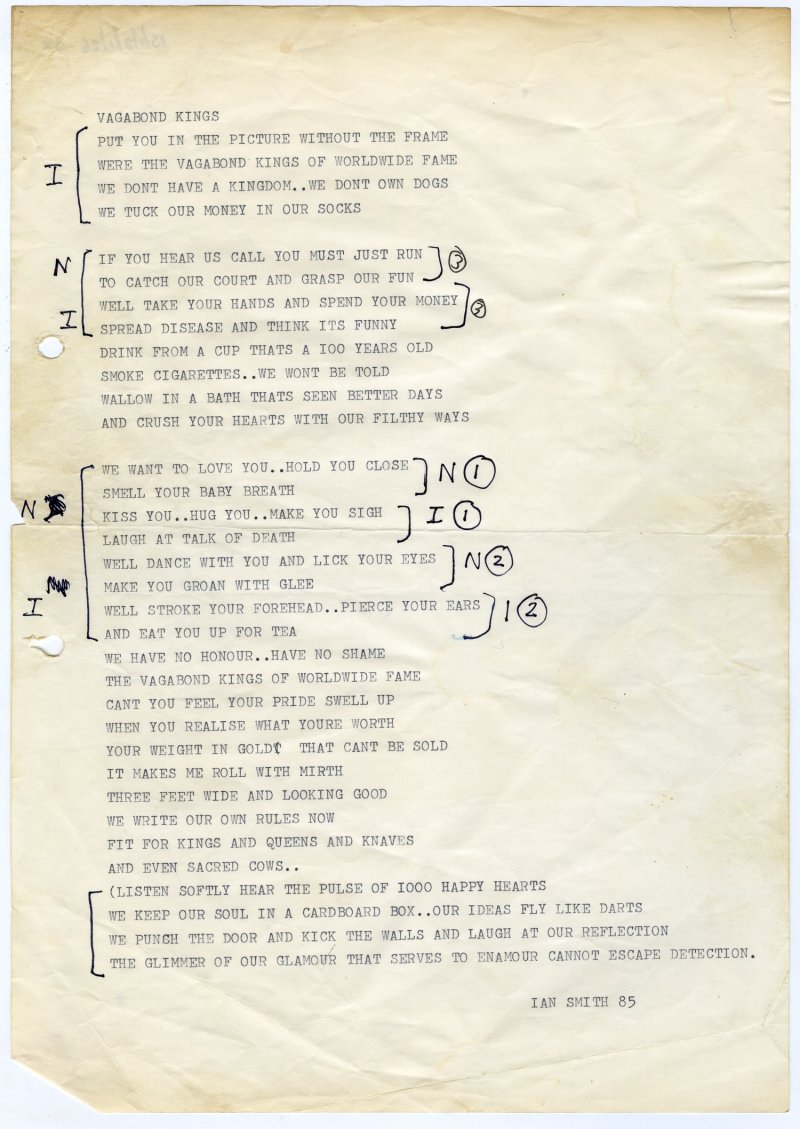 VAGABOND KINGS
PUT YOU IN THE PICTURE WITHOUT THE FRAME
WERE THE VAGABOND KINGS OF WORLDWIDE FAME
I
WE DONT HAVE A KINGDOM..WE DONT OWN DOGS
WE TUCK OUR MONEY IN OUR SOCKS
N IF YOU HEAR US CALL YOU MUST JUST RUN 3
TO CATCH OUR COURT AND GRASP OUR FUN
WELL TAKE YOUR HANDS AND SPEND YOUR MONEY 3
I SPREAD DISEASE AND THINK ITS FUNNY
DRINK FROM A CUP THATS A I00 YEARS OLD
SMOKE CIGARETTES..WE WONT BE TOLD
WALLOW IN A BATH THATS SEEN BETTER DAYS
AND CRUSH YOUR HEARTS WITH OUR FILTHY WAYS
WE WANT TO LOVE YOU..HOLD YOU CLOSE N 1
SMELL YOUR BABY BREATH
N KISS YOU..HUG YOU..MAKE YOU SIGH I 1
LAUGH AT TALK OF DEATH
WELL DANCE WITH YOU AND LICK YOUR EYES N 2
MAKE YOU GROAN WITH GLEE
I WELL STROKE YOUR FOREHEAD..PIERCE YOUR EARS I 2
AND EAT YOU UP FOR TEA
WE HAVE NO HONOUR..HAVE NO SHAME
THE VAGABOND KINGS OF WORLDWIDE FAME
CANT YOU FEEL YOUR PRIDE SWELL UP
WHEN YOU REALISE WHAT YOURE WORTH
YOUR WEIGHT IN GOLD( THAT CANT BE SOLD
IT MAKES ME ROLL WITH MIRTH
THREE FEET WIDE AND LOOKING GOOD
WE WRITE OUR OWN RULES NOW
FIT FOR KINGS AND QUEENS AND KNAVES
AND EVEN SACRED COWS..
(LISTEN SOFTLY HEAR THE PULSE OF I000 HAPPY HEARTS
WE KEEP OUR SOUL IN A CARDBOARD BOX..OUR IDEAS FLY LIKE DARTS
WE PUNCH THE DOOR AND KICK THE WALLS AND LAUGH AT OUR REFLECTION
THE GLIMMER OF OUR GLAMOUR THAT SERVES TO ENAMOUR CANNOT ESCAPE DETECTION.
IAN SMITH 85